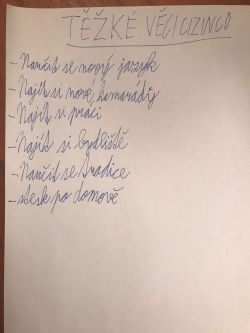 TĚŽKÉ VĚCI CIZINCŮ
- Naučit se nový jazyk
- Najít si nové kamarády
- Najít si práci
- Najít si bydliště
- Naučit se tradice
- stesk po domově